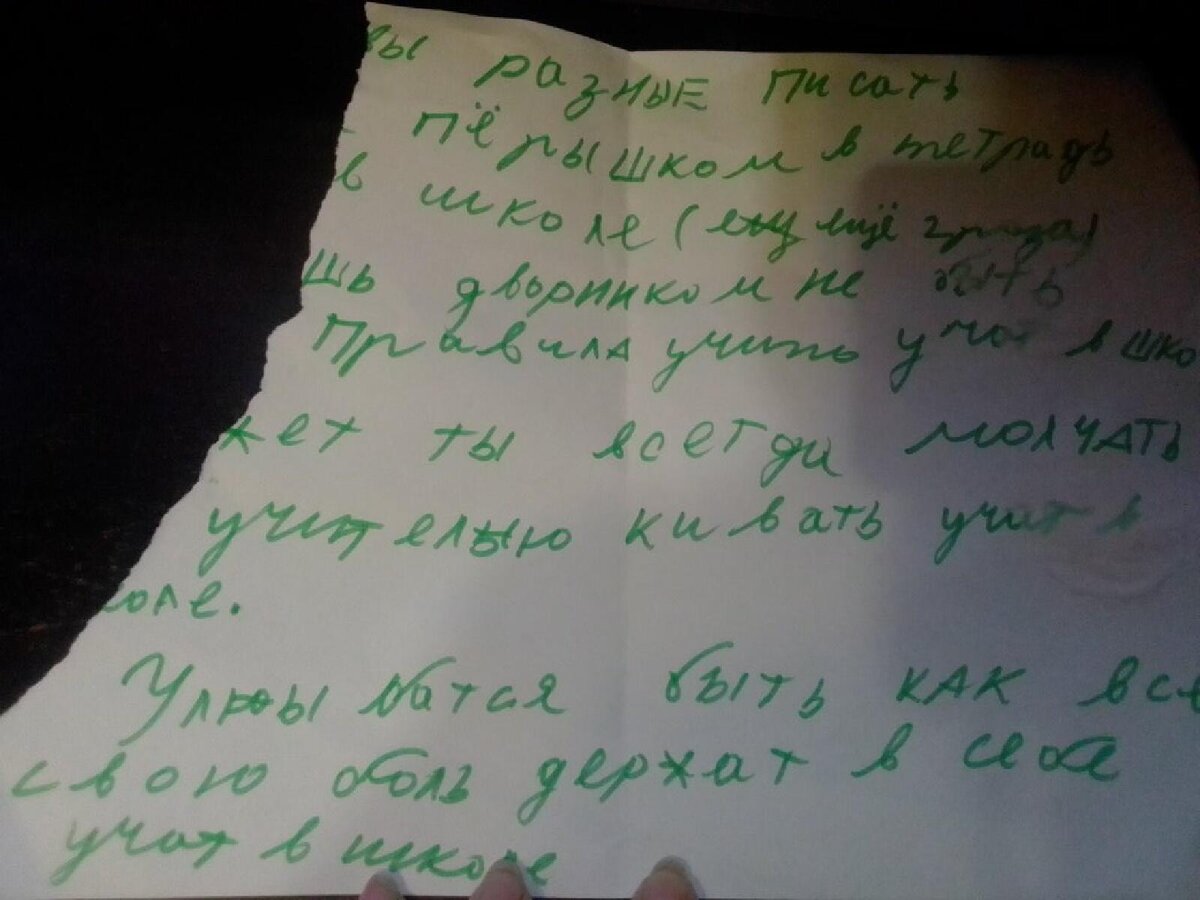 вы разные писать
пёрышком в тетрадь
в школе (ещё
шь дворником не быть
Правила учить учат в шко
жет ты всегда молчать
учителю кивать учат в
коле.
Улыбатся быть как все
свою боль держат в себе
учат в школе